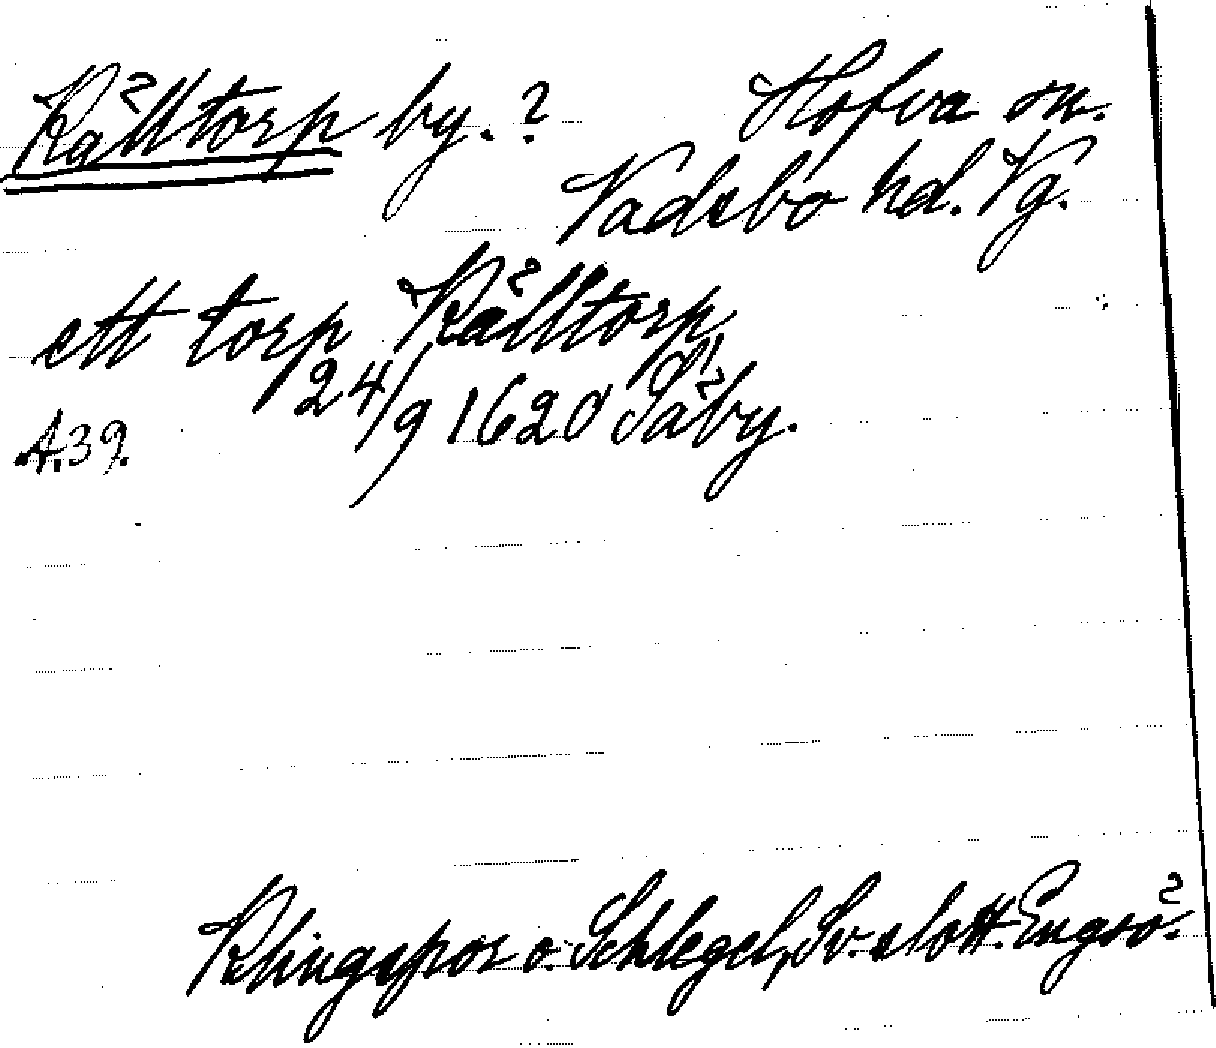 Källtorp by.? Hofva sn.
Vadsbo hd. Vg.
ett torp Källtorp,
24/9 1620 Säby.
A.39.
Klingspor o. Schlegel, Sv. slott. Engsö.